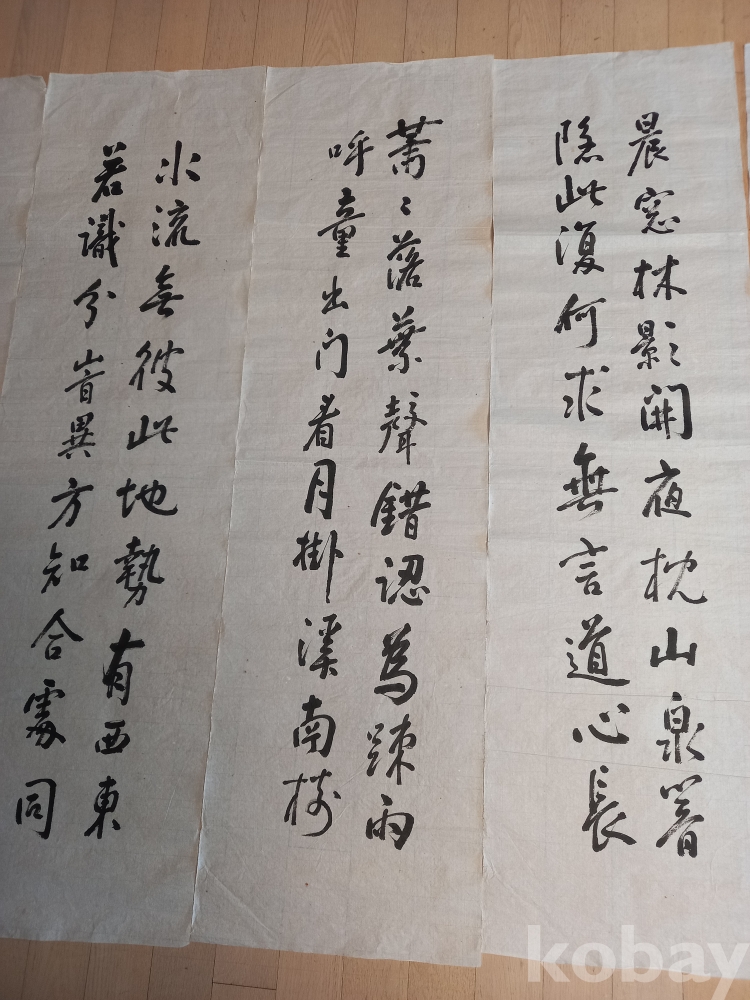 晨窓林影開夜枕山泉響
隱此復何求無言道心長
蕭〻落葉聲錯認爲疎雨
呼童出门看月掛溪南樹
水流無彼此地勢有西東
若識分旹異方知合處同
kobay